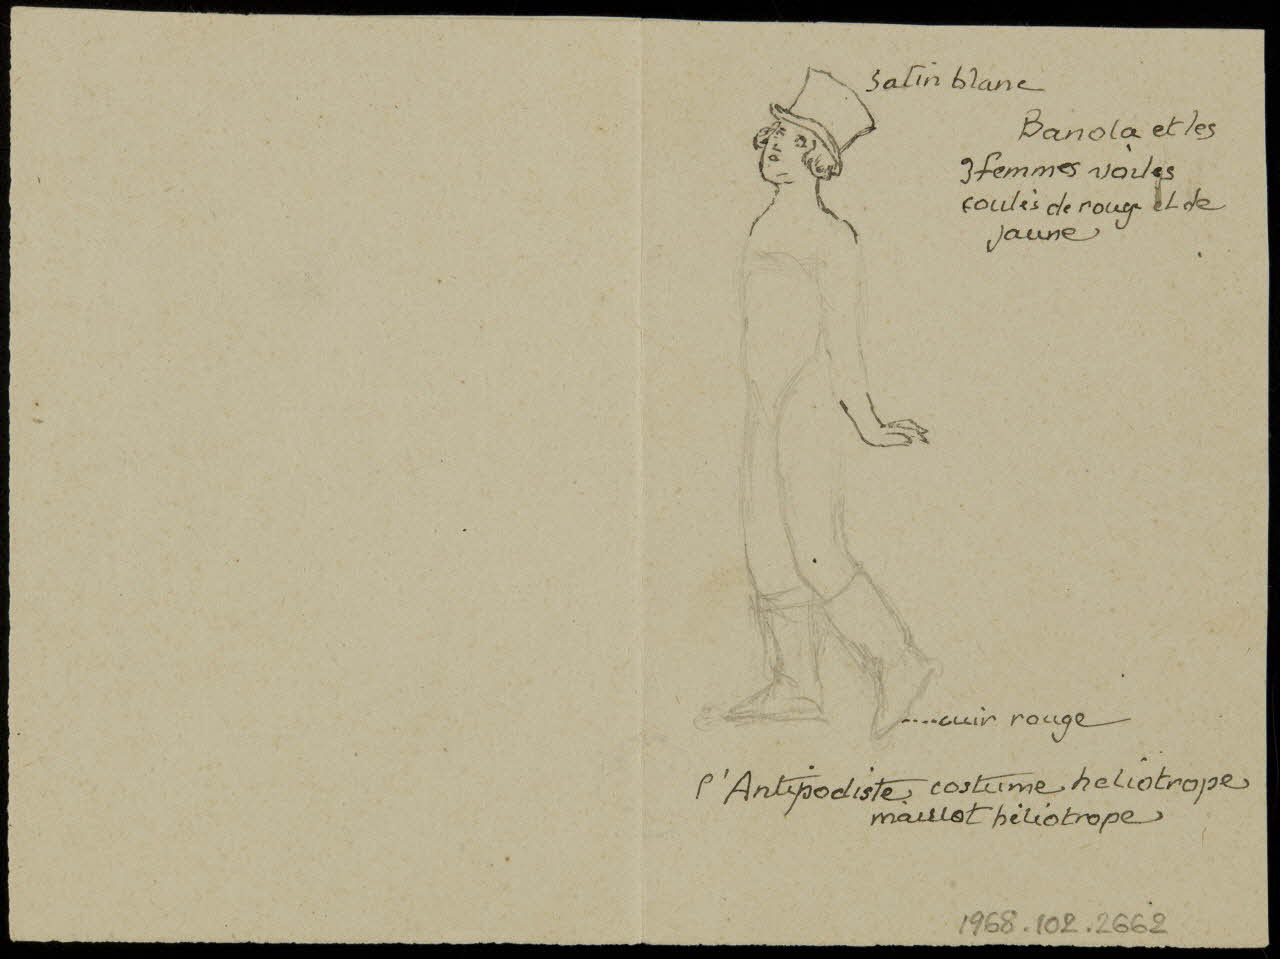 satin blanc
Banola et les
3 femmes voiles
coulés de rouge et de
jaune
....cuir rouge
l'Antipodiste costume heliotrope
maillot héliotrope
1968.102.2662